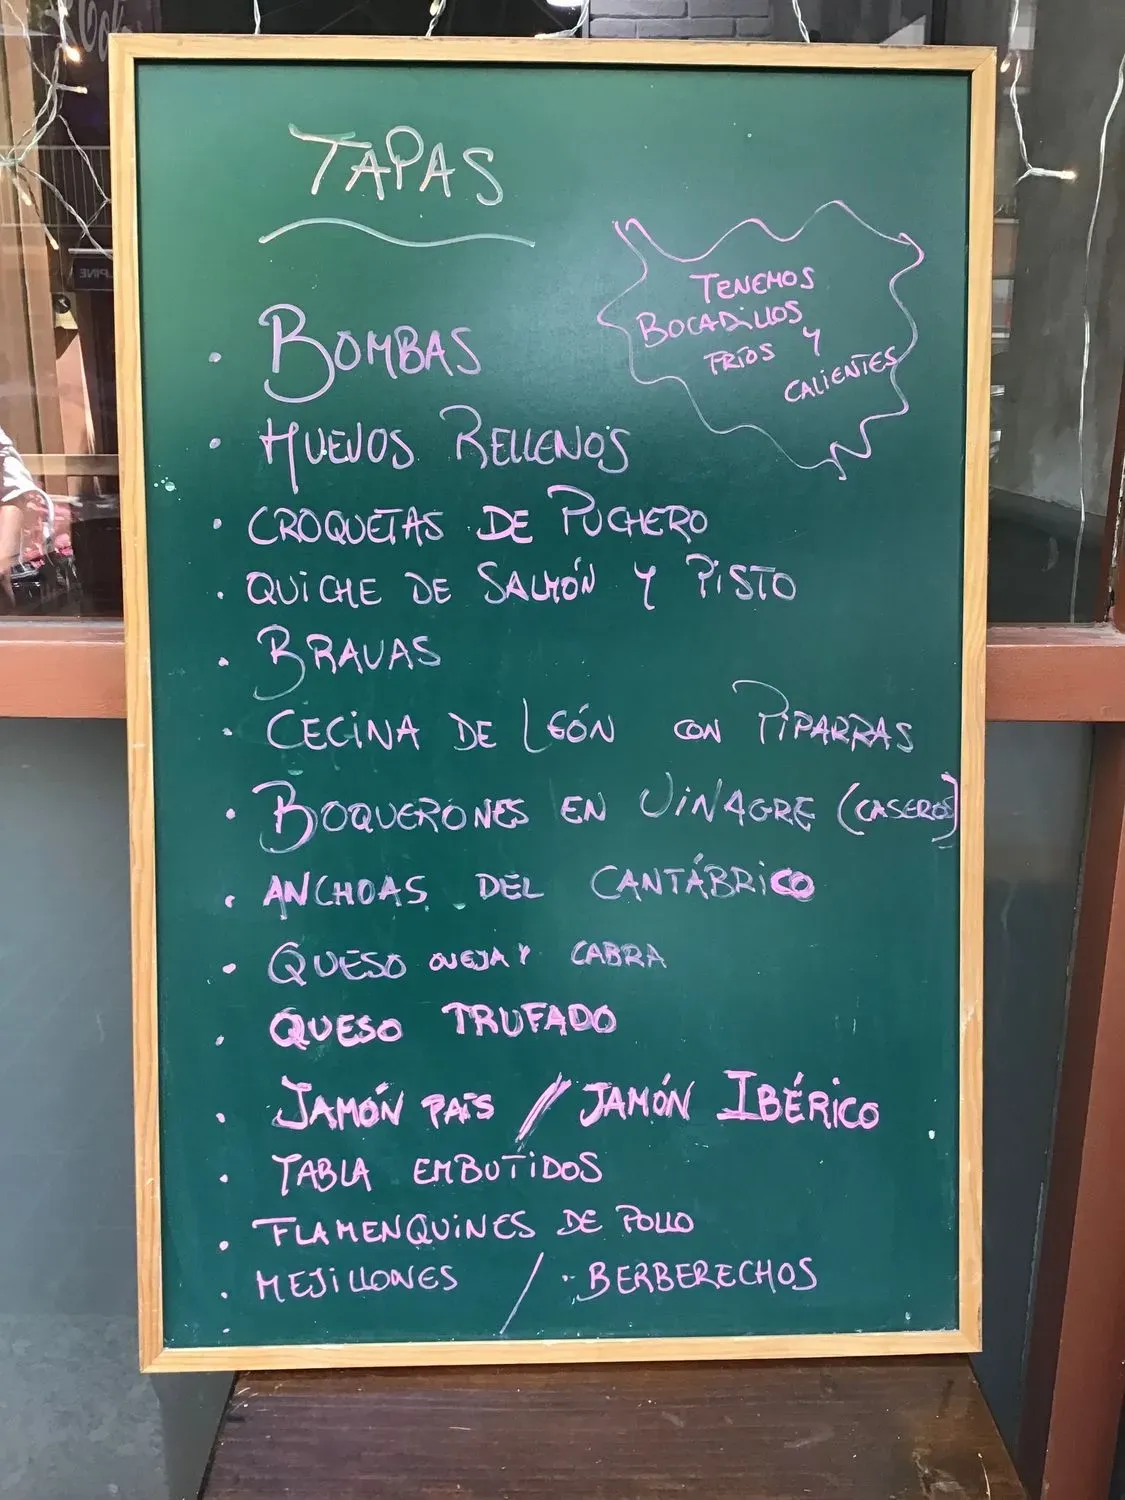 TAPAS
TENEMOS
BOCADILLOS
FRÍOS Y
CALIENTES
· BOMBAS
· HUEVOS RELLENOS
· CROQUETAS DE PUCHERO
· QUICHE DE SALMÓN Y PISTO
· BRAVAS
· CECINA DE LEÓN CON PIPARRAS
· BOQUERONES EN VINAGRE (CASEROS)
· ANCHOAS DEL CANTÁBRICO
· QUESO OVEJA Y CABRA
· QUESO TRUFADO
· JAMÓN PAÍS / JAMÓN IBÉRICO
· TABLA EMBUTIDOS
· FLAMENQUINES DE POLLO
· MEJILLONES / · BERBERECHOS